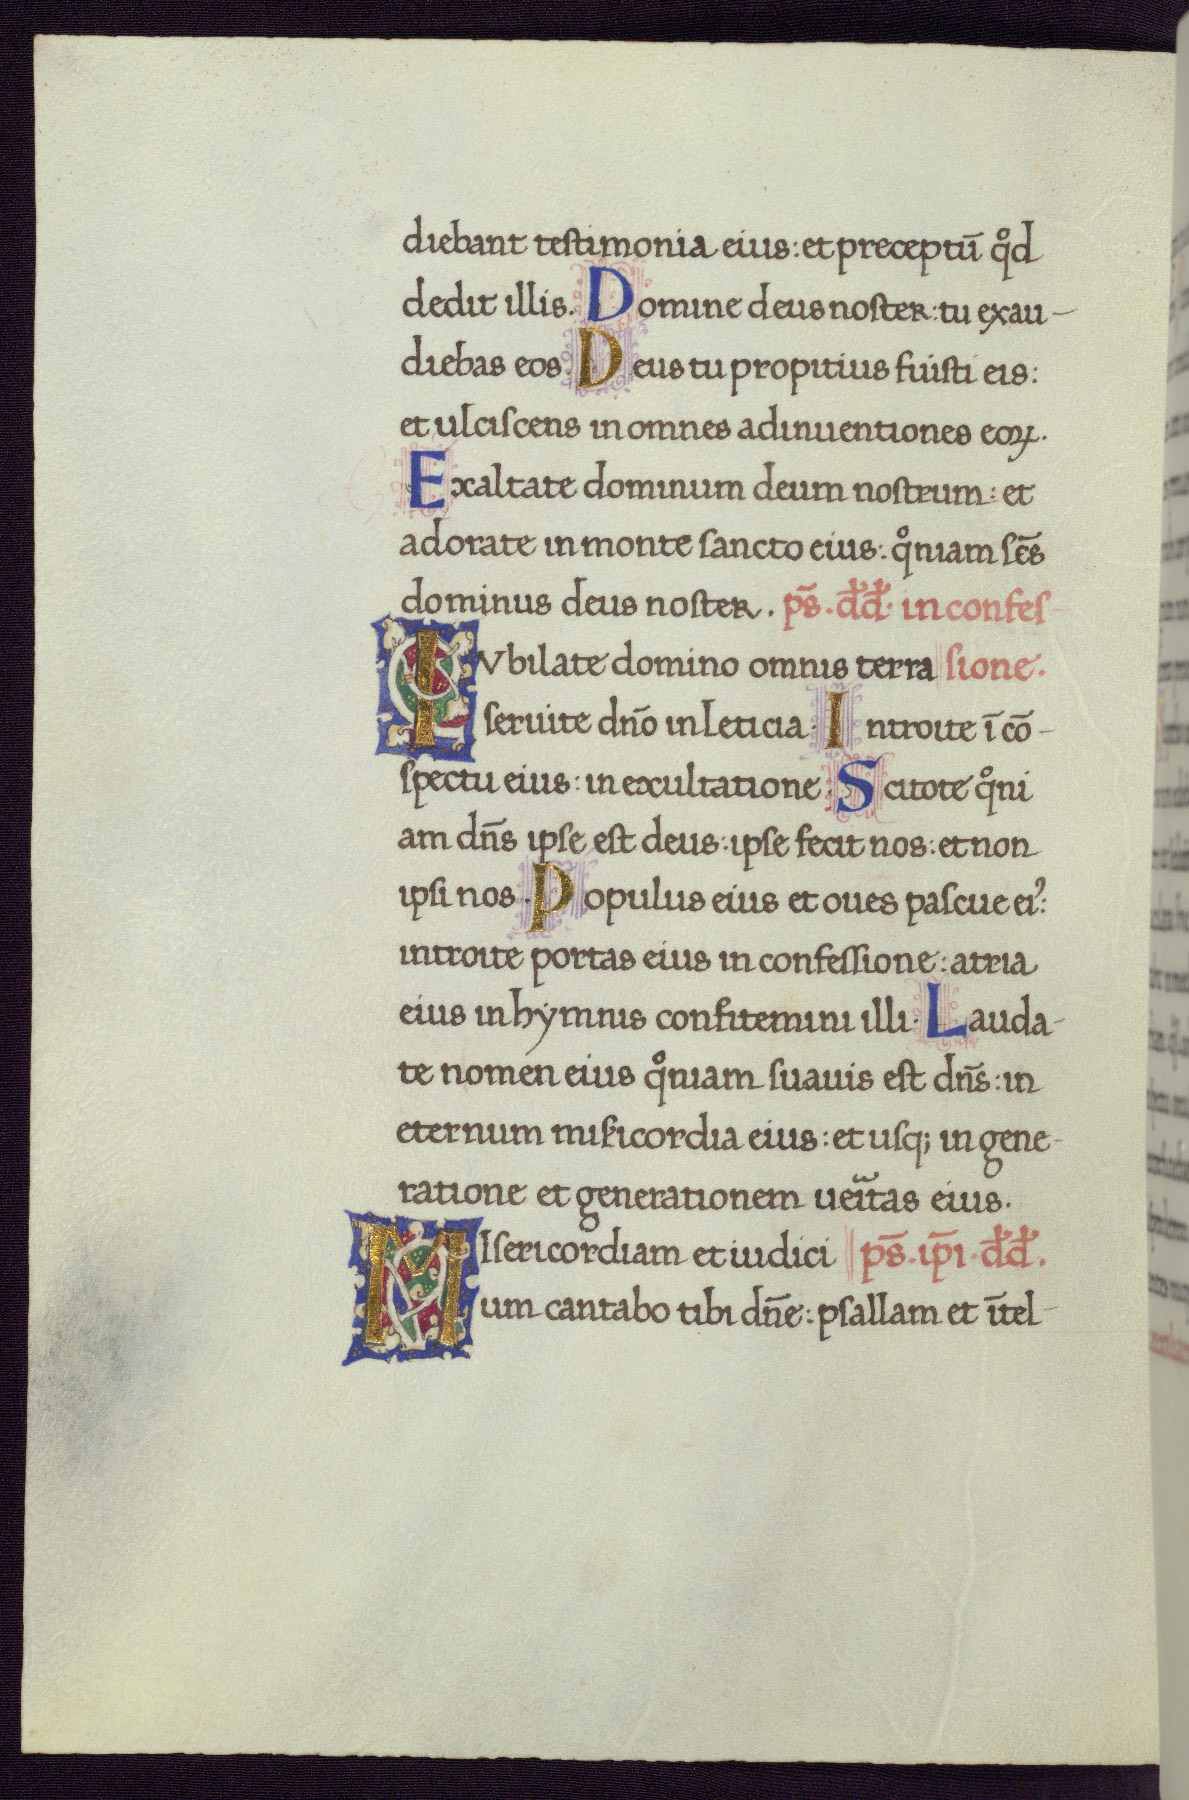 diebant testimonia eius: et preceptū qͦd
dedit illis. Domine deus noster: tu exau-
diebas eos. Deus tu propitius fuisti eis:
et ulciscens in omnes adinuentiones eoꝝ.
Exaltate dominum deum nostrum: et
adorate in monte sancto eius: qͦniam sc̄s
dominus deus noster. ps̄. dđ. in confes-
IVbilate domino omnis terra sione.
seruite dn̄o in leticia: Introite ī cō-
spectu eius: in exultatione. Scitote qͦni
am dn̄s ipse est deus: ipse fecit nos: et non
ipsi nos. Populus eius et oues pascue eiꝰ:
introite portas eius in confessione: atria
eius in hẏmnis confitemini illi. Lauda-
te nomen eius qͦniam suauis est dn̄s: in
eternum mis̄icordia eius: et usq; in gene-
ratione et generationem uei̅tas eius.
MIsericordiam et iudici ps̄. ip̄i. dđ.
um cantabo tibi dn̄e: psallam et ītel-